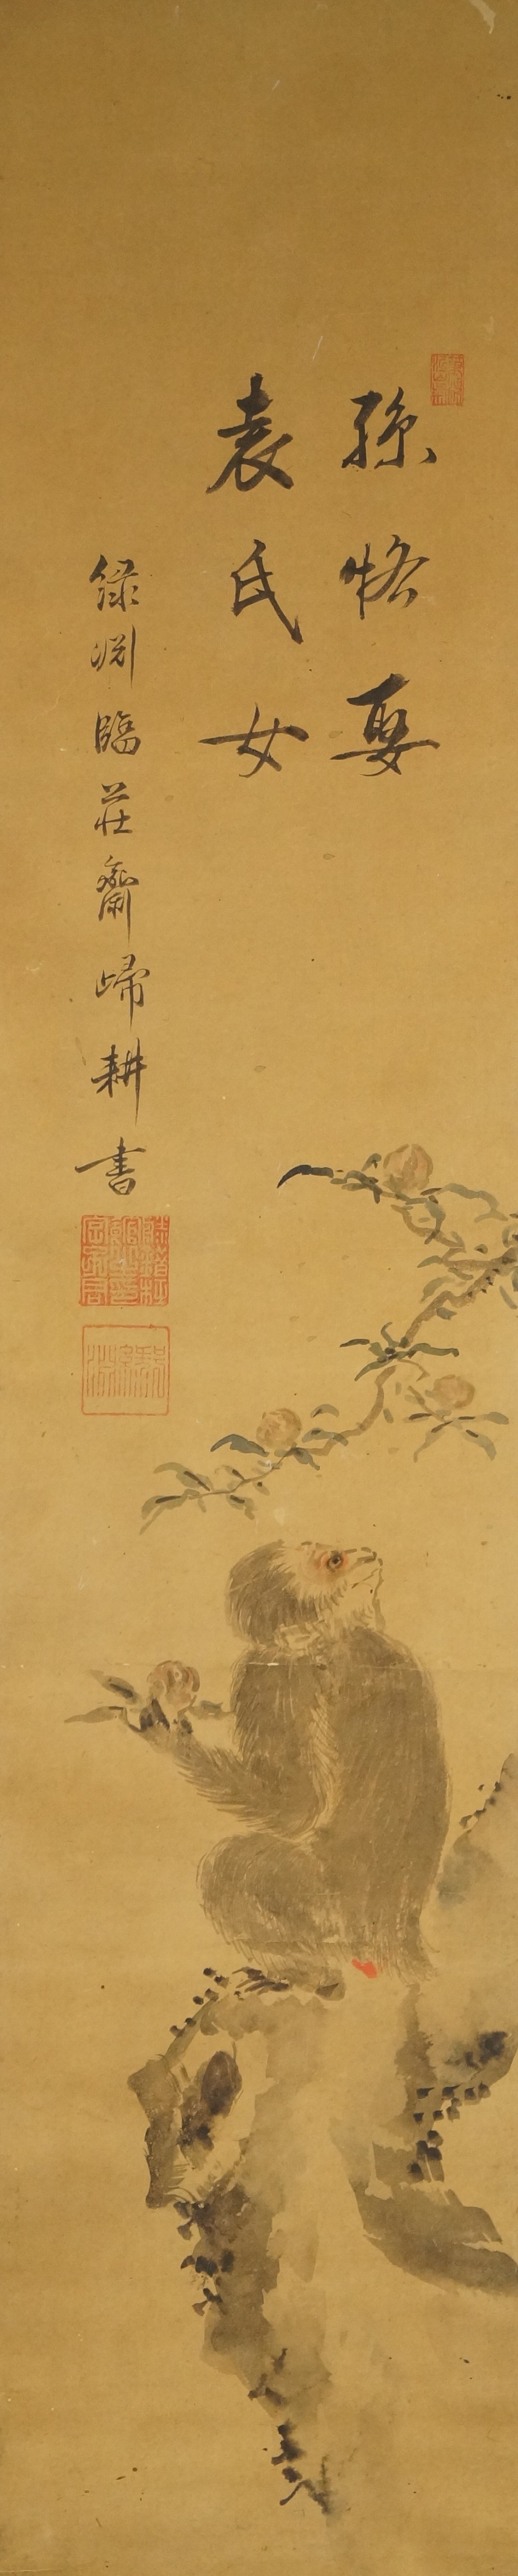 孫恪娶
袁氏女
緑渕臨荘齋歸耕書